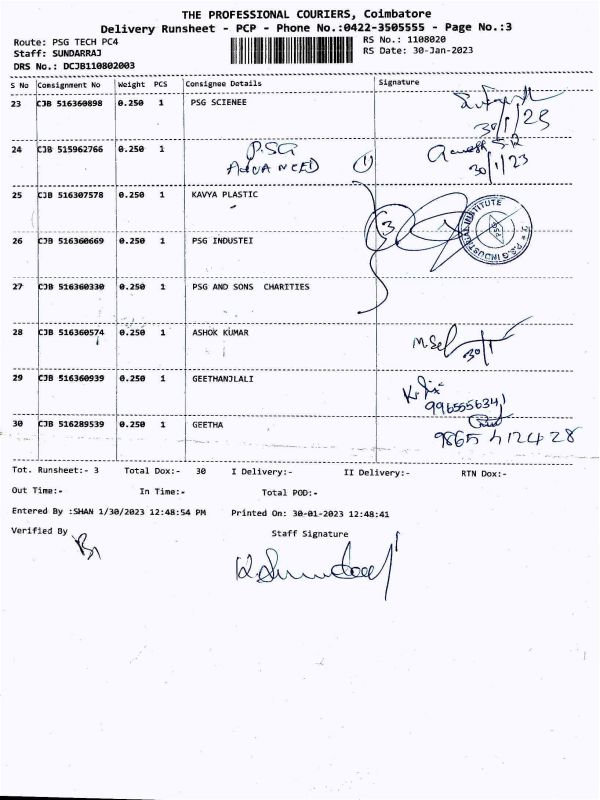 THE PROFESSIONAL COURIERS, Coimbatore
Delivery Runsheet - PCP - Phone No.:0422-3505555 - Page No.:3
Route: PSG TECH PC4 RS No.: 1108020
Staff: SUNDARRAJ RS Date: 30-Jan-2023
DRS No.: DCJB110802003
S No Consignment No Weight PCS Consignee Details Signature
23 CJB 516360898 0.250 1 PSG SCIENEE
30/1/23
24 CJB 515962766 1 0.250 1 PSG ADVANCED 1
30/1/23
25 CJB 516307578 0.250 1 KAVYA PLASTIC
3
26 CJB 516360669 0.250 1 PSG INDUSTEI
27 CJB 516360330 0.250 1 PSG AND SONS CHARITIES
28 CJB 516360574 0.250 1 ASHOK KUMAR
30/1
29 CJB 516360939 0.250 1 GEETHANJLALI
30 CJB 516289539 0.250 1 GEETHA
9865412428
Tot. Runsheet:- 3 Total Dox:- 30 I Delivery:- II Delivery:- RTN Dox:-
Out Time:- In Time:- Total POD:-
Entered By :SHAN 1/30/2023 12:48:54 PM Printed On: 30-01-2023 12:48:41
Verified By Staff Signature